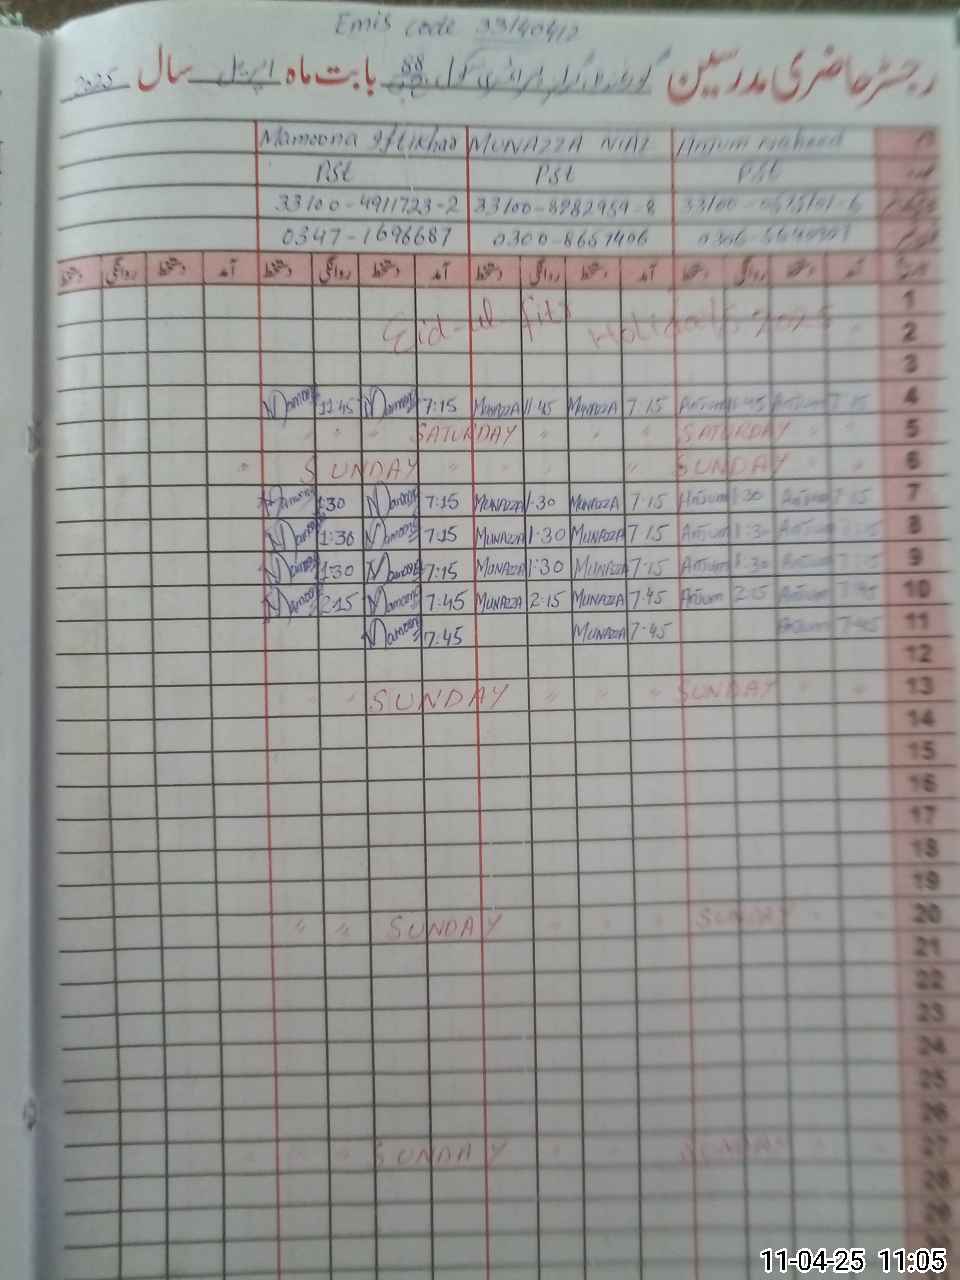 Emis code 33140412
رجسٹر حاضری مدرسین گورنمنٹ گرلز پرائمری سکول 88 بابت ماہ اپریل سال 2025
Mamoona Iftikhar MUNAZZA NIAZ Anjum
Pst Pst Pst
33100-4911723-2 33100-8982959-8
0347-1696687 0300-8667406
دستخط روانگی دستخط آمد دستخط روانگی دستخط آمد دستخط روانگی دستخط آمد دستخط روانگی دستخط آمد
1
Eid-ul-fitr Holidays 2025
2
3
Mamoona 11:45 Mamoona 7:15 MUNAZZA 11:45 MUNAZZA 7:15 Anjum 11:45 Anjum 7:15 4
" " " SATURDAY " " SATURDAY " " 5
" SUNDAY " " " " SUNDAY " " 6
Mamoona 1:30 Mamoona 7:15 MUNAZZA 1:30 MUNAZZA 7:15 Anjum 1:30 Anjum 7:15 7
Mamoona 1:30 Mamoona 7:15 MUNAZZA 1:30 MUNAZZA 7:15 Anjum 1:30 Anjum 7:15 8
Mamoona 1:30 Mamoona 7:15 MUNAZZA 1:30 MUNAZZA 7:15 Anjum 1:30 Anjum 7:15 9
Mamoona 2:15 Mamoona 7:45 MUNAZZA 2:15 MUNAZZA 7:45 Anjum 2:15 Anjum 7:45 10
Mamoona 7:45 MUNAZZA 7:45 Anjum 7:45 11
12
" " SUNDAY " " " SUNDAY " " 13
14
15
16
17
18
19
" " SUNDAY " " " SUNDAY " " 20
21
22
23
24
25
26
" " SUNDAY " " " SUNDAY " " 27
28
29
11-04-25 11:05